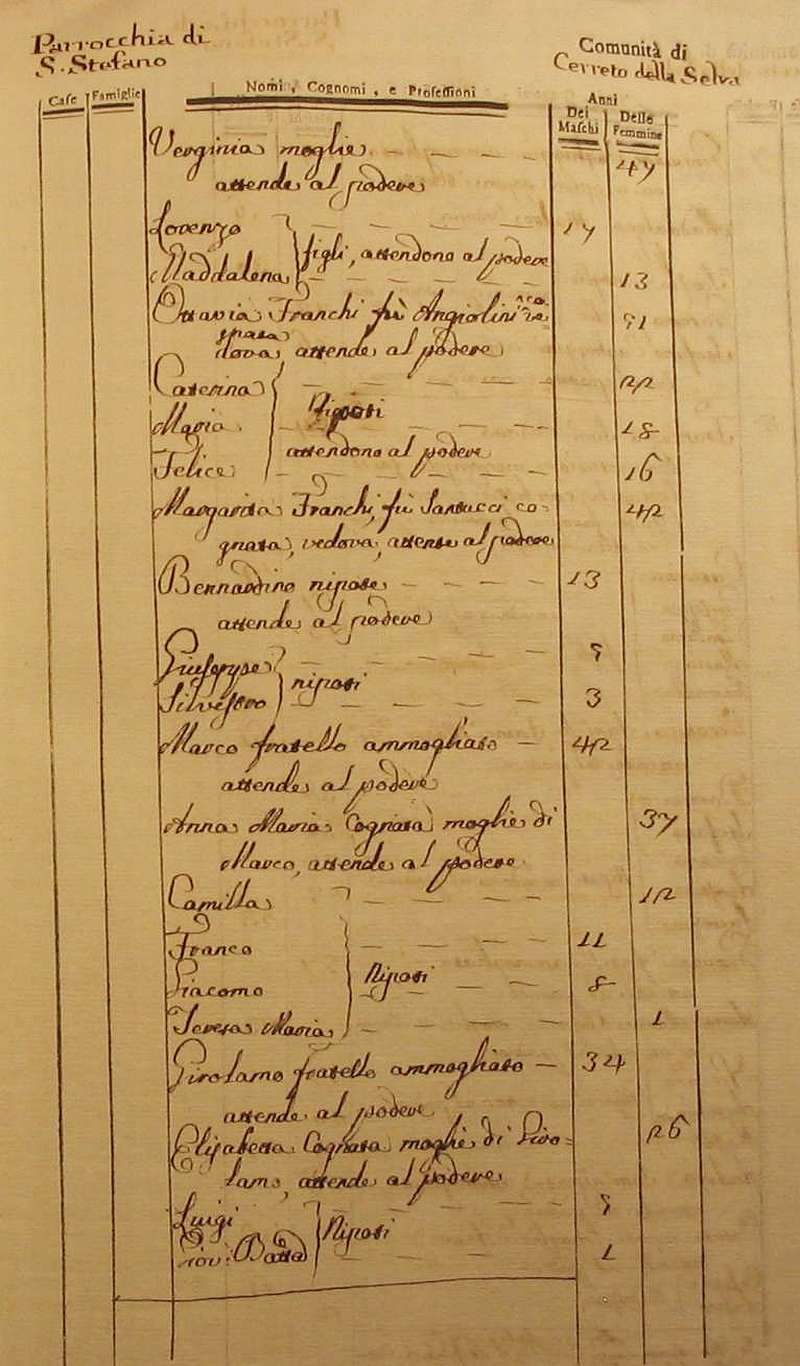 Parrocchia di
S. Stefano
Comunità di
Cerreto della Selva
Case Famiglie Nomi, Cognomi, e Professioni Anni
Dei Maschi Delle Femmine
Verginia moglie 47
attende al podere
Lorenzo 17
figli, attendono al podere
Maddalena 13
Ottavia Franchi fù Angiolini
attende al podere
Caterina 22
Maria 18
Nipoti
attendono al podere
Felice 16
Margarita Franchi, fù Santucci co-
gnata, vedova, attende al podere
42
Bernardino nipote 13
attende al podere
Giuseppe 5
nipoti
Silvestro 3
Marco fratello ammogliato 42
attende al podere
Anna Maria Cognata moglie di 37
Marco, attende al podere
Camilla 12
Franco 11
Nipoti
Giacomo 8
Teresa Maria 1
Girolamo fratello ammogliato 34
attende al podere
Elisabetta Cognata moglie di Giro- 26
lamo, attende al podere
Luigi 5
Nipoti
Giov: Batta 1